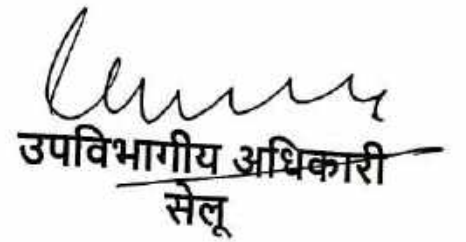 उपविभागीय अधिकारी
सेलू